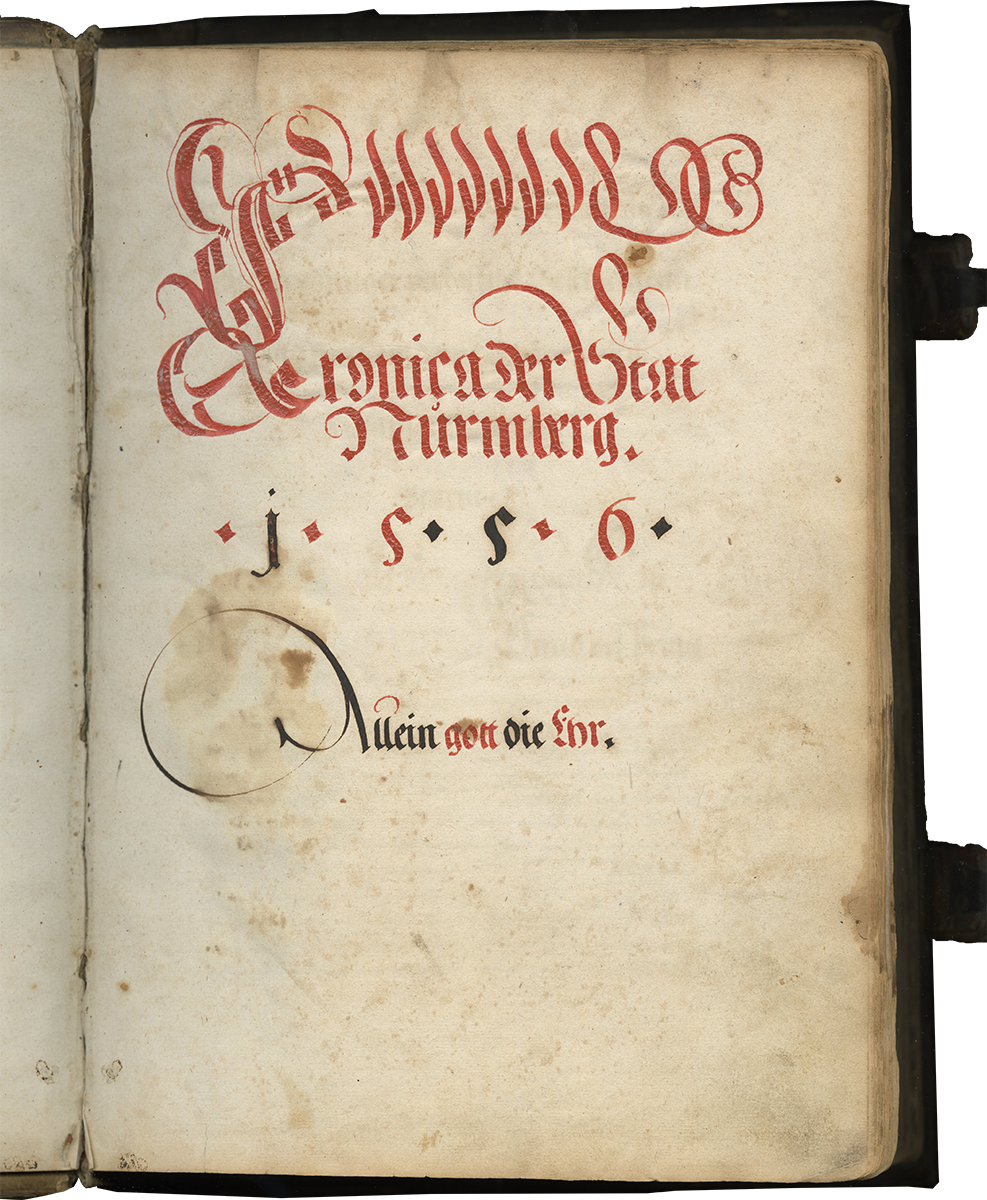 Cronica der Stat
Nürmberg.
· j · 5 · 5 · 6 ·
Allein gott die Ehr.